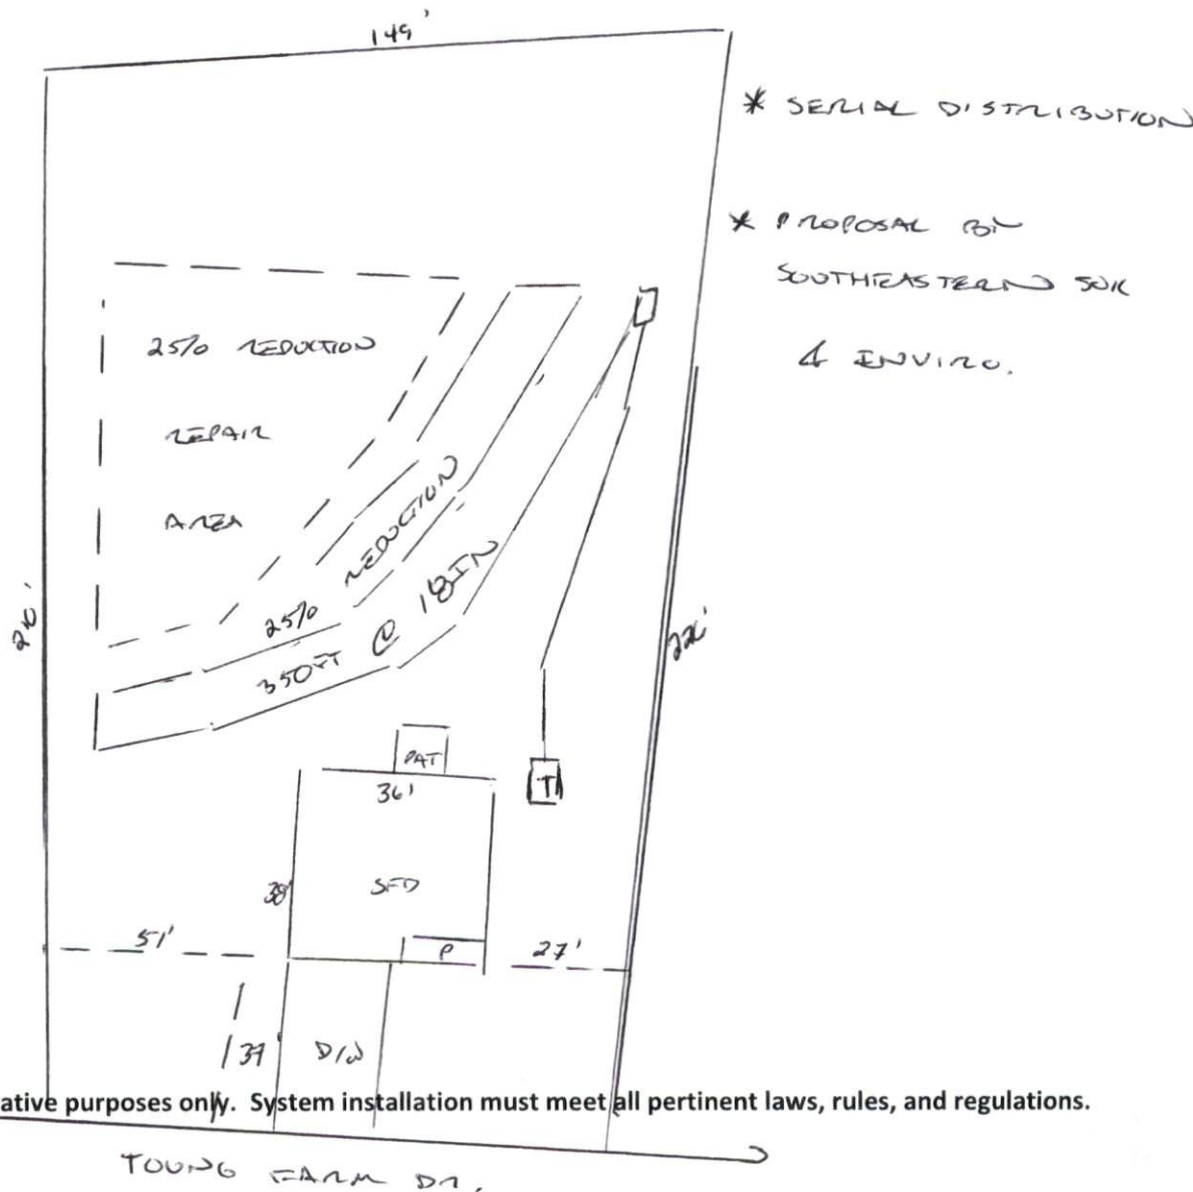 149'
* SERIAL DISTRIBUTION
* PROPOSAL BY
SOUTHEASTERN SOIL
& ENVIRO.
25% REDUCTION
REPAIR
AREA
25% REDUCTION
350FT @ 18IN
PAT
36'
T
38'
SFD
51'
P
27'
37'
D/W
ative purposes only. System installation must meet all pertinent laws, rules, and regulations.
YOUNG FARM DR.